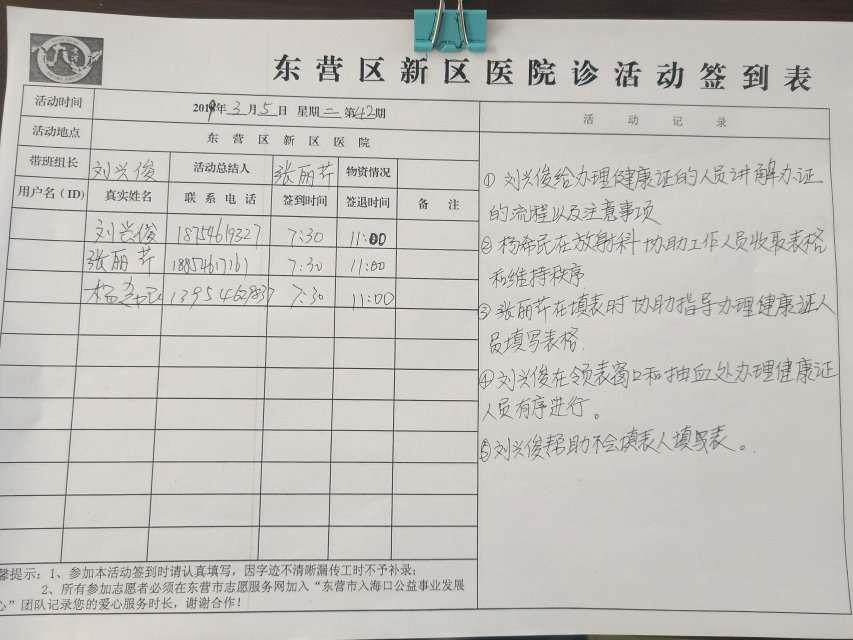 东营区新区医院诊活动签到表
活动时间 2019年3月5日 星期二 第42期
活动地点 东营区新区医院
带班组长 刘兴俊 活动总结人 张丽芹 物资情况
用户名(ID) 真实姓名 联系电话 签到时间 签退时间 备注
刘兴俊 18754619327 7:30 11:00
张丽芹 18854617161 7:30 11:00
杨希民 7:30 11:00
馨提示:1、参加本活动签到时请认真填写,因字迹不清晰漏传工时不予补录;
2、所有参加志愿者必须在东营市志愿服务网加入“东营市入海口公益事业发展
心”团队记录您的爱心服务时长,谢谢合作!
活动记录
①刘兴俊给办理健康证的人员讲解办证
的流程以及注意事项
②杨希民在放射科协助工作人员收取表格
和维持秩序
③张丽芹在填表时协助指导办理健康证人
员填写表格.
④刘兴俊在领表窗口和抽血处办理健康证
人员有序进行。
⑤刘兴俊帮助不会填表人填写表。